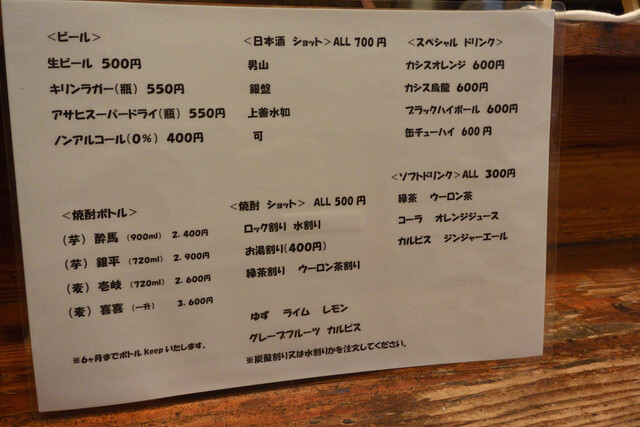 <ビール>
生ビール 500円
キリンラガー(瓶) 550円
アサヒスーパードライ(瓶) 550円
ノンアルコール(0%) 400円
<日本酒 ショット> ALL 700円
男山
銀盤
上善水如
可
<スペシャル ドリンク>
カシスオレンジ 600円
カシス烏龍 600円
ブラックハイボール 600円
缶チューハイ 600円
<焼酎ボトル>
(芋) 酔馬 (900ml) 2.400円
(芋) 銀平 (720ml) 2.900円
(麦) 壱岐 (720ml) 2.600円
(麦) 喜喜 (一升) 3.600円
※6ヶ月までボトルkeepいたします。
<焼酎 ショット> ALL 500円
ロック割り 水割り
お湯割り(400円)
緑茶割り ウーロン茶割り
ゆず ライム レモン
グレープフルーツ カルピス
※炭酸割り又は水割りかを注文してください。
<ソフトドリンク> ALL 300円
緑茶 ウーロン茶
コーラ オレンジジュース
カルピス ジンジャーエール